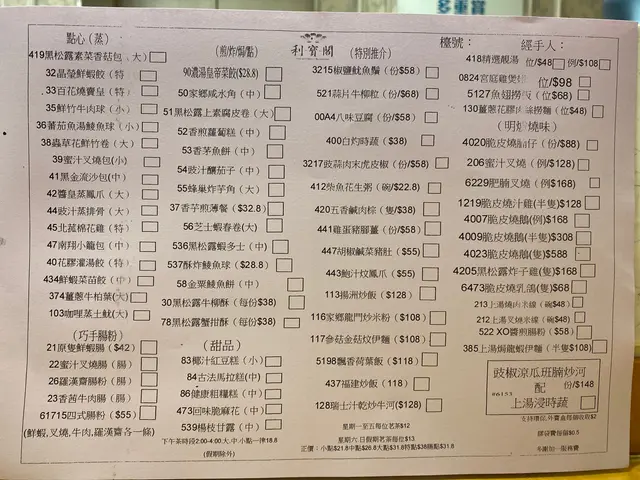 多重
點心(蒸)
419黑松露素菜香菇包(大)
32晶瑩鮮蝦餃(特
33百花燒賣皇(特
35鮮竹牛肉球(小)
36蕃茄魚湯鯪魚球(小)
38蟲草花鮮竹卷(大)
39蜜汁叉燒包(小)
41黑金流沙包(中)
42醬皇蒸鳳爪(大)
44豉汁蒸排骨(大)
45北菰棉花雞(特)
47南翔小籠包(中)
40花膠灌湯餃(特)
434鮮蝦菜苗餃(中)
374薑蔥牛柏葉(大)
103咖哩蒸土魷(大)
(巧手腸粉)
21原隻鮮蝦腸($42)
22蜜汁叉燒腸(腸)
26羅漢齋腸粉(腸)
23香茜牛肉腸(腸)
61715四式腸粉($55)
(鮮蝦,叉燒,牛肉,羅漢齋各一條)
(煎/炸/焗/點)
90濃湯皇帝菜餃($28.8)
50家鄉咸水角(中)
51黑松露上素腐皮卷(大)
52香煎蘿蔔糕(中)
53香茅魚餅(中)
54豉汁釀茄子(中)
55蜂巢炸芋角(大)
37香芋煎薄餐($32.8)
56芝士蝦春卷(大)
536黑松露蝦多士(中)
537酥炸鯪魚球($28.8)
58金粟鯪魚餅(中)
30黑松露牛柳酥(每份$38)
78黑松露蟹柑酥(每份$38)
(甜品)
83椰汁紅豆糕(小)
84古法馬拉糕(中)
86健康粗糧糕(中)
473回味脆麻花(中)
539楊枝甘露(中)
下午茶時段2:00-4:00大.中.小點一律18.8
(假期除外)
利寶閣
(特別推介)
3215椒鹽魷魚鬚(份$58)
521蒜片牛柳粒(份/$68)
00A4八味豆腐(份/$58)
400白灼時蔬($38)
3217豉蒜肉末虎皮椒(份/$58)
412柴魚花生粥(碗/$22.8)
420五香鹹肉棕(隻/$38)
441雞蛋豬腳薑(份/$58)
447胡椒鹹菜豬肚($55)
443鮑汁炆鳳爪($55)
113揚洲炒飯($128)
116家鄉龍門炒米粉($108)
117參菇金菇炆伊麵($108)
5198飄香荷葉飯($118)
437福建炒飯(118)
128瑞士汁乾炒牛河($128)
星期一至五每位茗茶$12
星期六.日假期茗茶每位$13
正價:小點$21.8中點$26.8大點$31.8特點$36腸點$31.8
檯號:
經手人:
418精選靚湯 位/$48 例/$108
0824宮庭雞煲 位/$98
5127魚翅撈 (位$68)
130薑蔥花膠 撈麵(位$48)
(明爐燒味)
4020脆皮燒 仔(份/$88)
206蜜汁叉燒(例/$128)
6229肥腩叉燒(例$168)
1219脆皮燒汁雞(半隻)$128
4007脆皮燒鵝(例)$168
4009脆皮燒鵝(半隻)$308
4023脆皮燒鵝(隻)$588
4205黑松露炸子雞(隻)$168
6473脆皮燒乳鴿(隻)$68
213上湯燒肉米線(碗$48)
212上湯叉燒米線(碗$48)
522 XO醬煎腸粉($58)
385上湯焗龍蝦伊麵(半隻$108)
豉椒涼瓜班腩炒河
配 份/$148
#6153 上湯浸時蔬
支持環保,外賣盒每個收取$2
膠袋費每個$0.5
多謝加一服務費